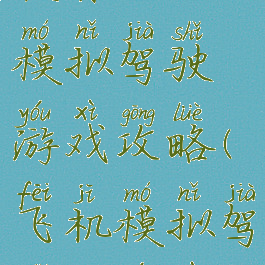 mó nǐ jià shǐ
模拟驾驶
yóu xì gōng lüè
游戏攻略(
fēi jī mó nǐ jià
飞机模拟驾